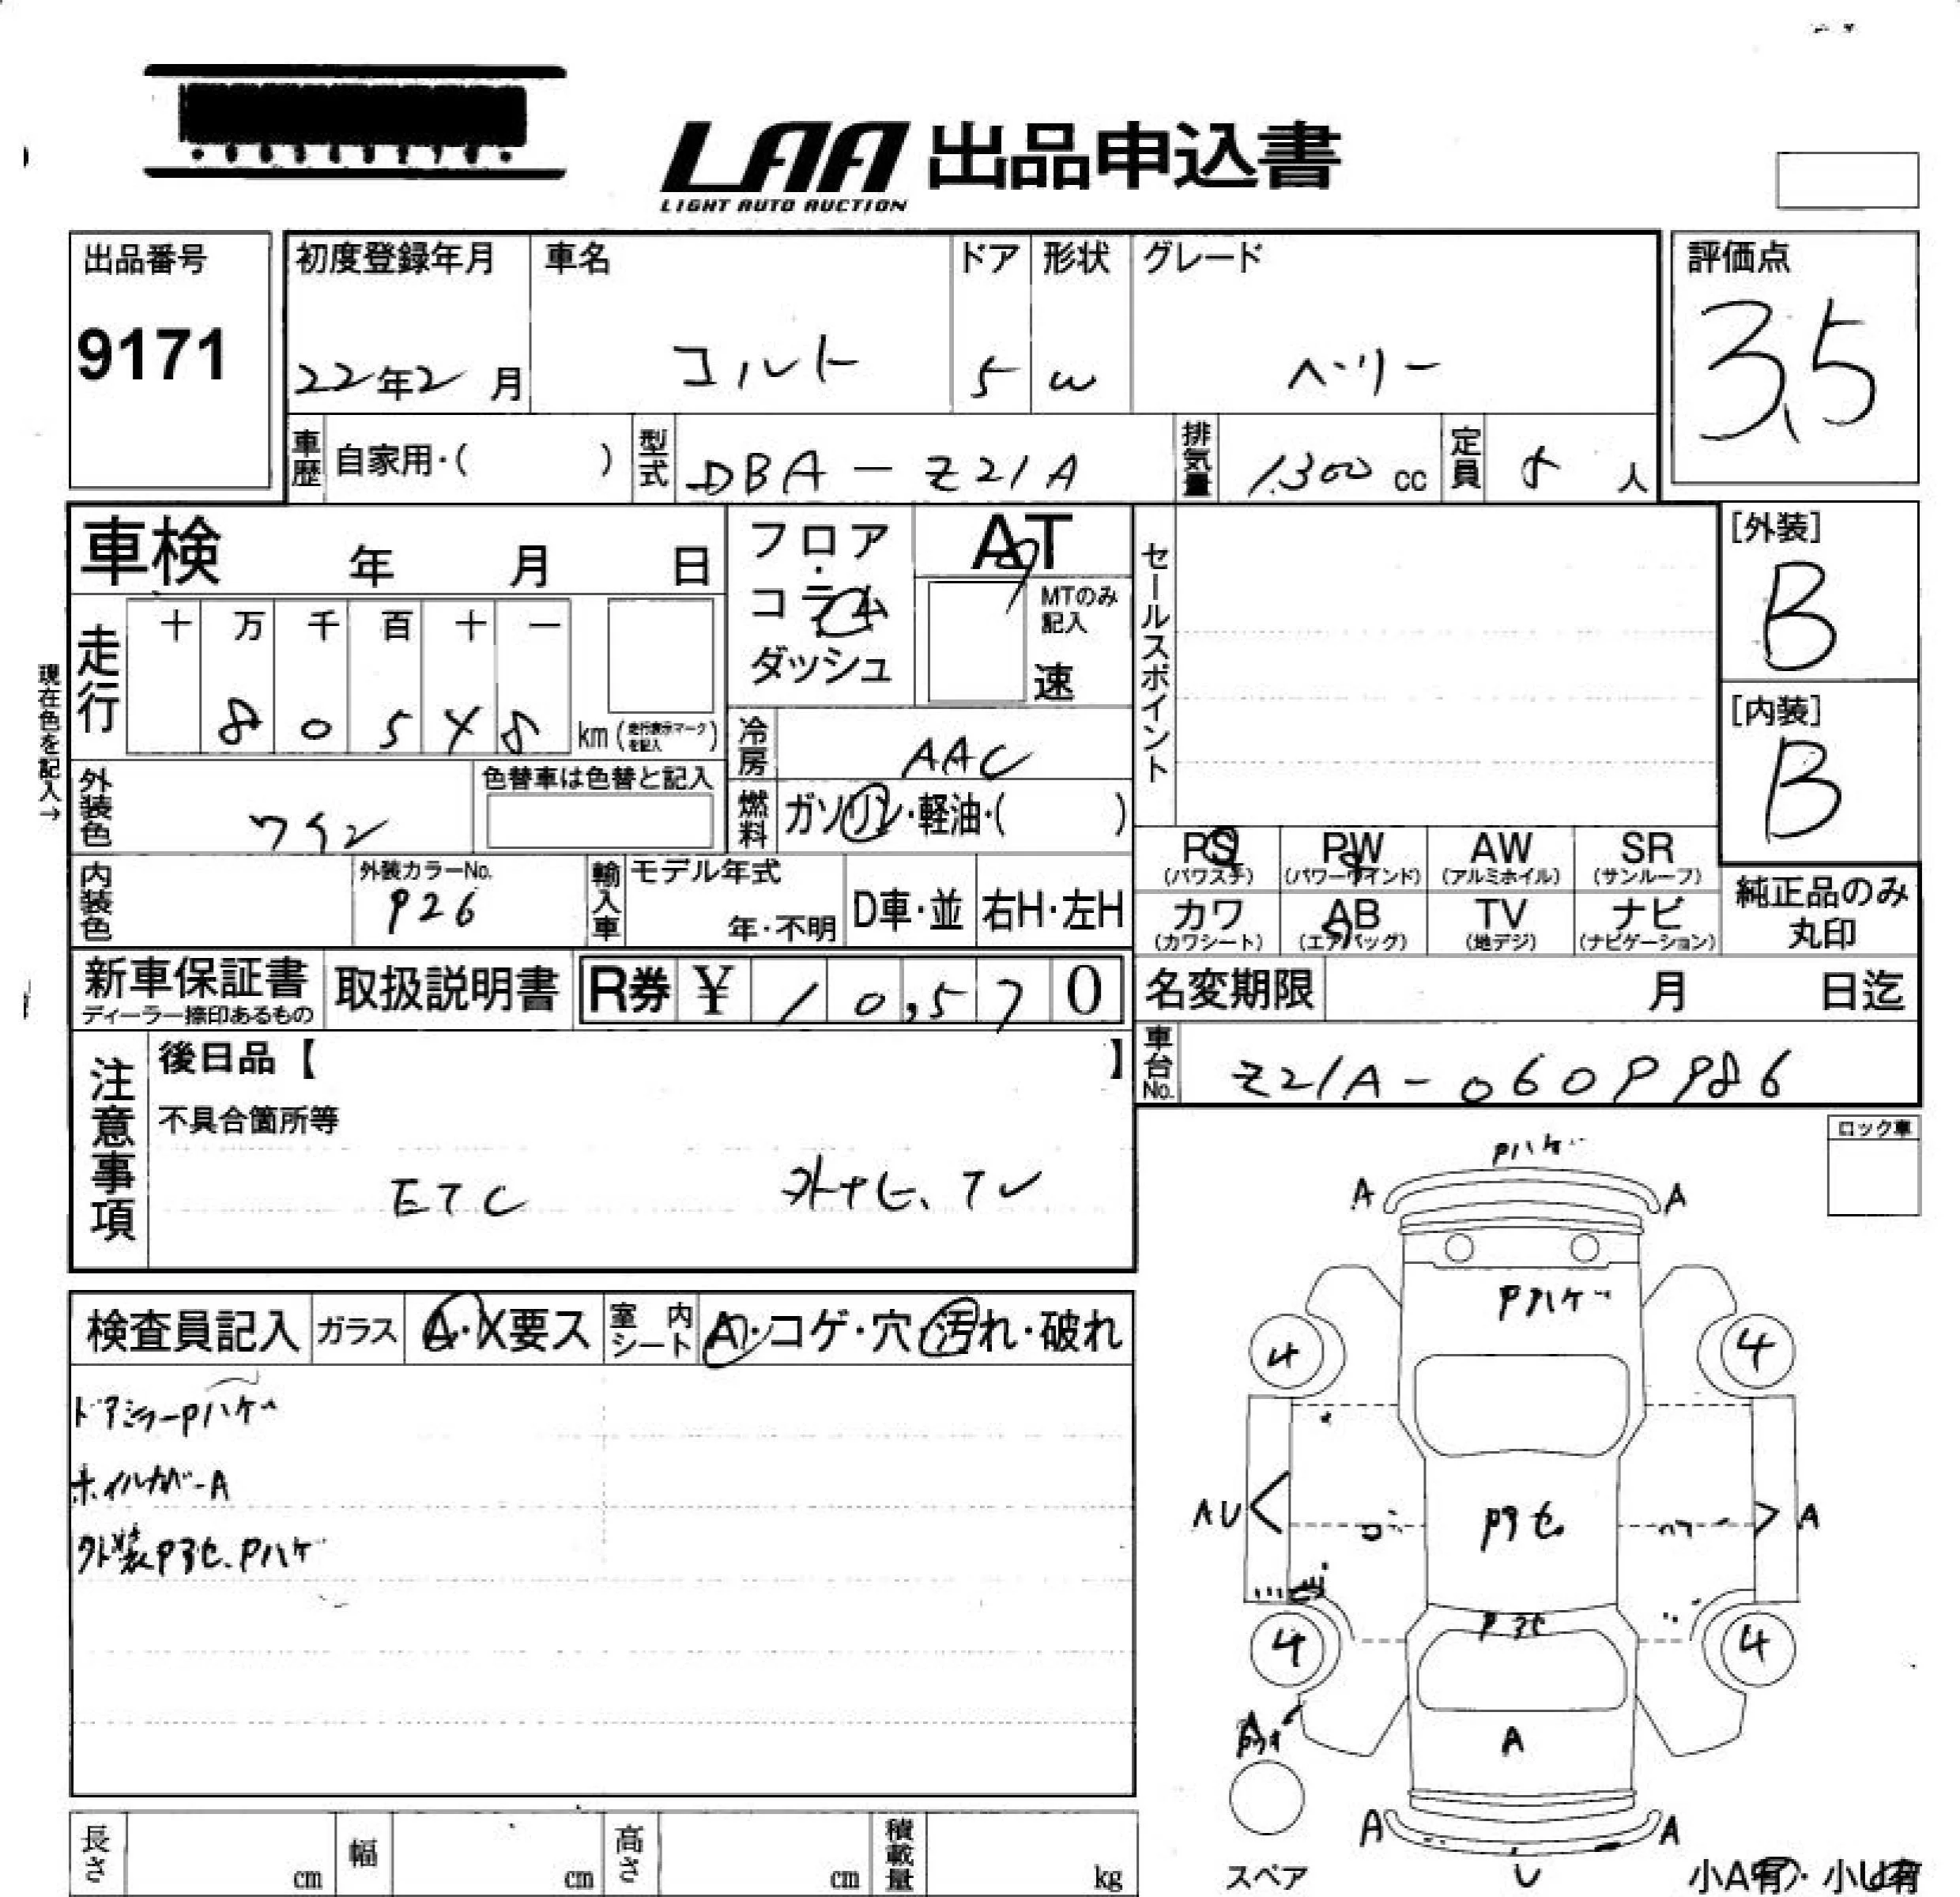 LAA 出品申込書
LIGHT AUTO AUCTION
出品番号
9171
初度登録年月
22年2月
車名
コルト
ドア
5
形状
W
グレード
ベリー
評価点
3.5
車歴 自家用・( )
型式 DBA-Z21A
排気量 1,300 cc
定員 5 人
車検 年 月 日
フロア・コラム
ダッシュ
AT
MTのみ記入
速
セールスポイント
[外装]
B
[内装]
B
現在色を記入→
走行
十 万 千 百 十 一
8 0 5 4 8 km (走行表示マークを記入)
冷房 AAC
外装色 ワイン
色替車は色替と記入
燃料 ガソリン・軽油・( )
PS (パワステ)
PW (パワーウインド)
AW (アルミホイル)
SR (サンルーフ)
カワ (カワシート)
AB (エアバッグ)
TV (地デジ)
ナビ (ナビゲーション)
純正品のみ
丸印
内装色
外装カラーNo.
P26
輸入車
モデル年式
年・不明
D車・並
右H・左H
新車保証書
ディーラー捺印あるもの
取扱説明書
R券 ¥ 10,570
名変期限 月 日迄
車台No. Z21A-0609986
注意事項
後日品【 】
不具合箇所等
ETC 外ナビ、TV
ロック車
検査員記入
ガラス A・X要ス
室内シート A・コゲ・穴・汚れ・破れ
ドアミラーPハゲ
ホイルカバーA
外装Pヨセ、Pハゲ
Pハゲ
A A
Pハゲ
4 4
AU A
Pヨセ
Pヨセ
4 4
A
A A
U
スペア
小A有・小U有
長さ cm
幅 cm
高さ cm
積載量 kg